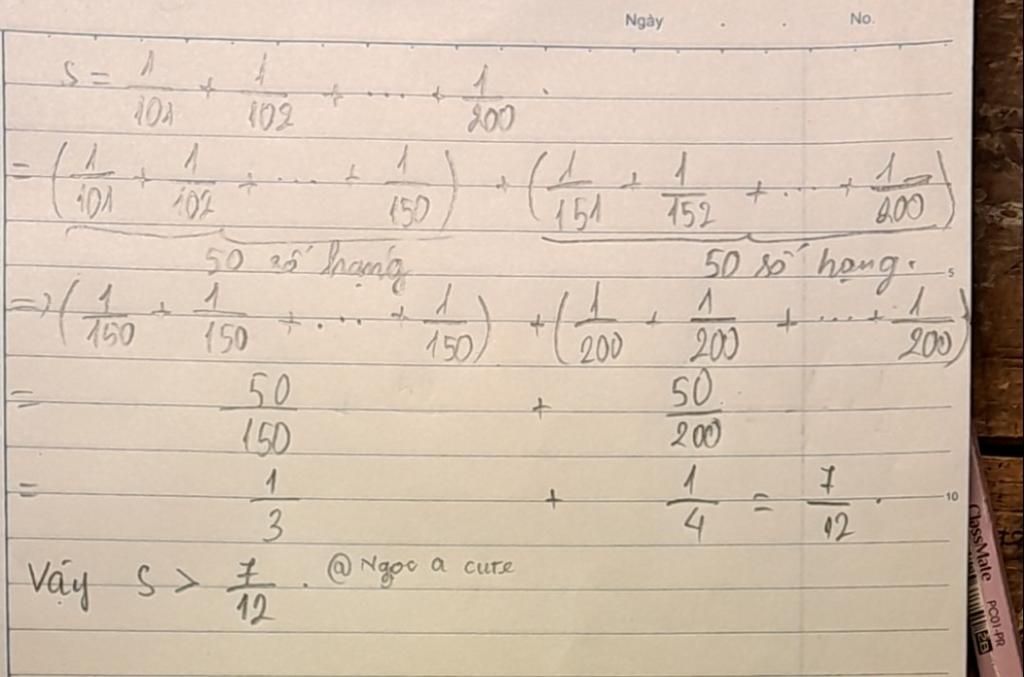 Ngày . . No.
S = 1/101 + 1/102 + ... + 1/200 .
= (1/101 + 1/102 + ... + 1/150) + (1/151 + 1/152 + ... + 1/200)
50 số hạng 50 số hạng.
5
=> (1/150 + 1/150 + ... + 1/150) + (1/200 + 1/200 + ... + 1/200)
= 50/150 + 50/200
= 1/3 + 1/4 = 7/12 .
10
Vậy S > 7/12 . @ Ngoc a cute
ClassMate PC01-PR 2B